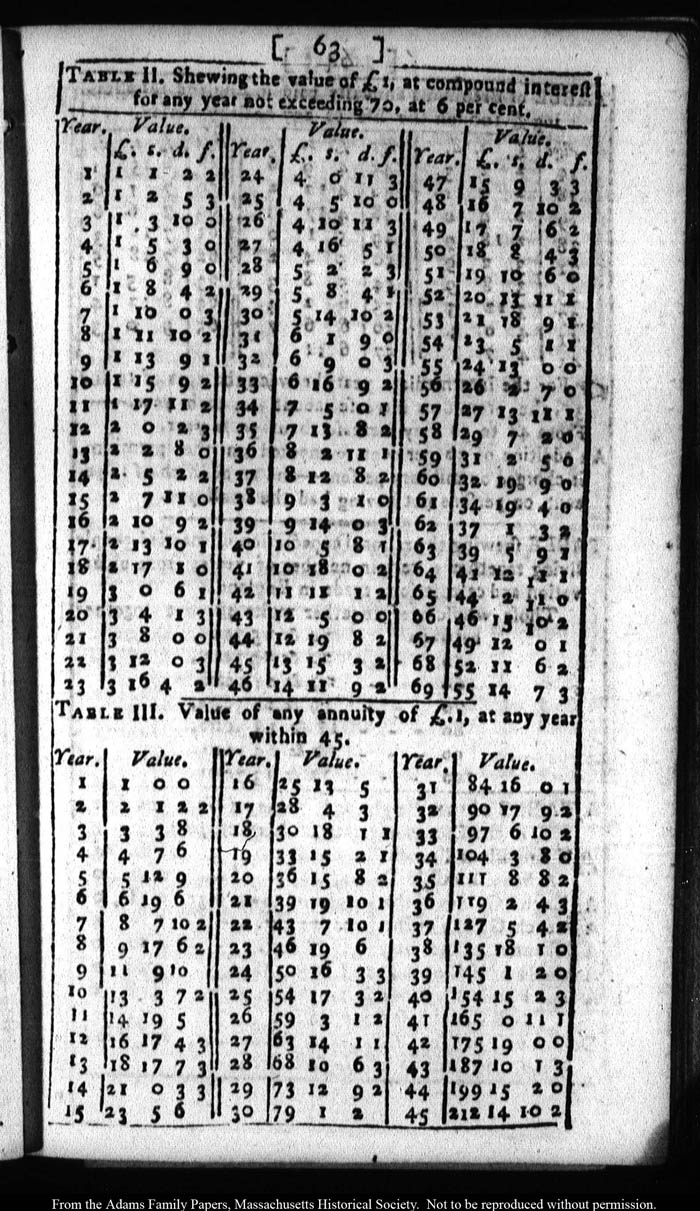 [ 63 ]
TABLE II. Shewing the value of £ 1, at compound interest
for any year not exceeding 70, at 6 per cent.
Year. Value. Value. Value.
£. s. d. f. Year. £. s. d. f. Year. £. s. d. f.
1 1 1 2 2 24 4 0 11 3 47 15 9 3 3
2 1 2 5 3 25 4 5 10 0 48 16 7 10 2
3 1 3 10 0 26 4 10 11 3 49 17 7 6 2
4 1 5 3 0 27 4 16 5 1 50 18 8 4 3
5 1 6 9 0 28 5 2 2 3 51 19 10 6 0
6 1 8 4 2 29 5 8 4 1 52 20 13 11 1
7 1 10 0 3 30 5 14 10 2 53 21 18 9 1
8 1 11 10 2 31 6 1 9 0 54 23 5 1 1
9 1 13 9 1 32 6 9 0 3 55 24 13 0 0
10 1 15 9 2 33 6 16 9 2 56 26 2 7 0
11 1 17 11 2 34 7 5 0 1 57 27 13 11 1
12 2 0 2 3 35 7 13 8 2 58 29 7 2 0
13 2 2 8 0 36 8 2 11 1 59 31 2 5 0
14 2 5 2 2 37 8 12 8 2 60 32 19 9 0
15 2 7 11 0 38 9 3 1 0 61 34 19 4 0
16 2 10 9 2 39 9 14 0 3 62 37 1 3 2
17 2 13 10 1 40 10 5 8 1 63 39 5 9 1
18 2 17 1 0 41 10 18 0 2 64 41 12 11 1
19 3 0 6 1 42 11 11 1 2 65 44 2 11 0
20 3 4 1 3 43 12 5 0 0 66 46 15 10 2
21 3 8 0 0 44 12 19 8 2 67 49 12 0 1
22 3 12 0 3 45 13 15 3 2 68 52 11 6 2
23 3 16 4 2 46 14 11 9 2 69 55 14 7 3
TABLE III. Value of any annuity of £.1, at any year
within 45.
Year. Value. Year. Value. Year. Value.
1 1 0 0 16 25 13 5 31 84 16 0 1
2 2 1 2 2 17 28 4 3 32 90 17 9 2
3 3 3 8 18 30 18 1 1 33 97 6 10 2
4 4 7 6 19 33 15 2 1 34 104 3 8 0
5 5 12 9 20 36 15 8 2 35 111 8 8 2
6 6 19 6 21 39 19 10 1 36 119 2 4 3
7 8 7 10 2 22 43 7 10 1 37 127 5 4 2
8 9 17 6 2 23 46 19 6 38 135 18 1 0
9 11 9 10 24 50 16 3 3 39 145 1 2 0
10 13 3 7 2 25 54 17 3 2 40 154 15 2 3
11 14 19 5 26 59 3 1 2 41 165 0 11 1
12 16 17 4 3 27 63 14 1 1 42 175 19 0 0
13 18 17 7 3 28 68 10 6 3 43 187 10 1 3
14 21 0 3 3 29 73 12 9 2 44 199 15 2 0
15 23 5 6 30 79 1 2 45 212 14 10 2
From the Adams Family Papers, Massachusetts Historical Society. Not to be reproduced without permission.